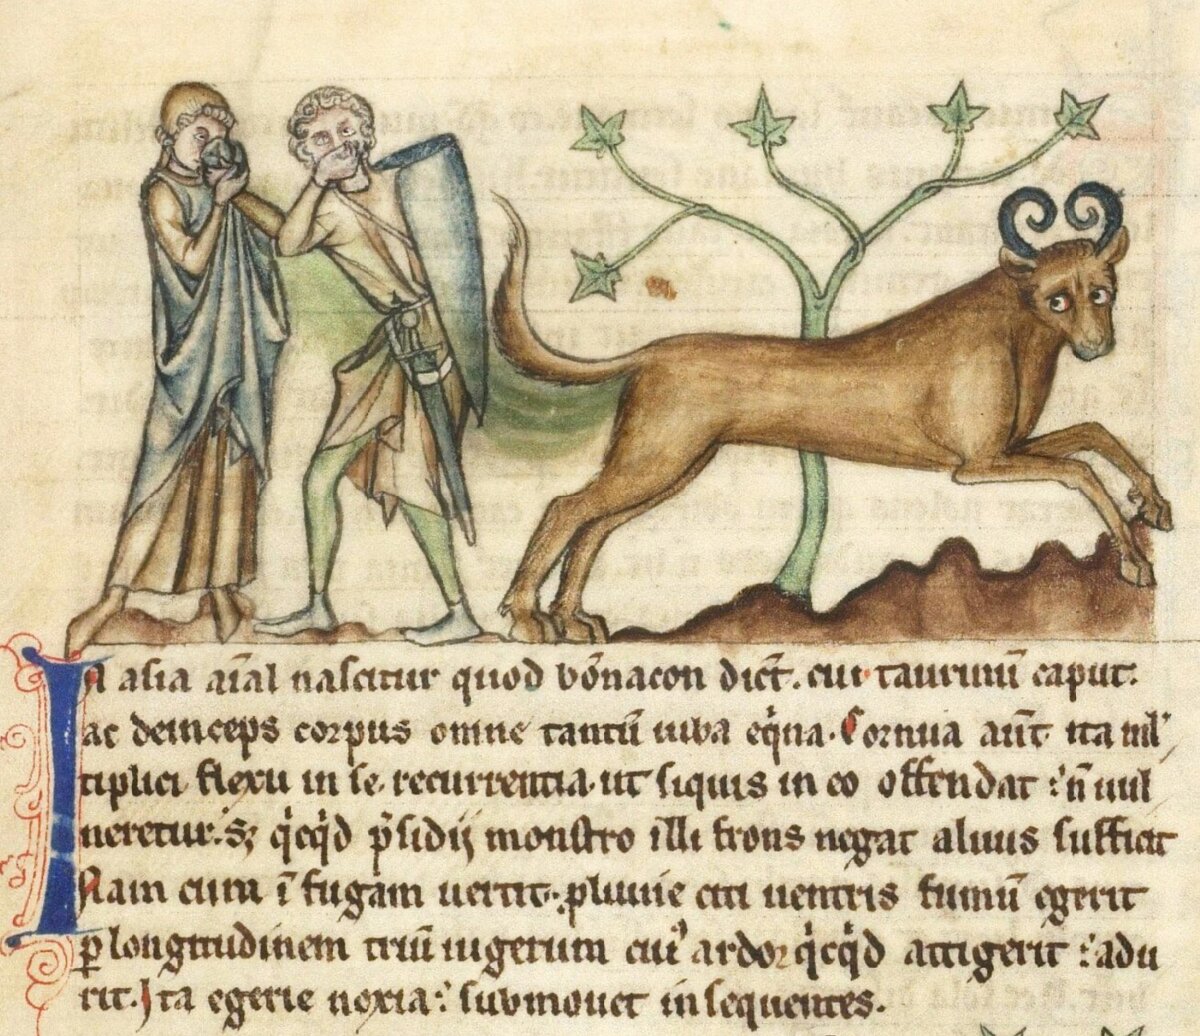 IN asia aīal nascitur quod bōnacon dicīt. cui taurinū caput.
ac deinceps corpus omne tantū iuba eqͥna. Cornua aūt ita ml᾽
tiplici flexu in se recurrentia ut siquis in eo offendat : n̄ uul
neretur. sꝫ qͥcqͥd p̄sidij monstro illi frons negat aluus sufficit
Nam cum ī fugam uertit. pluuie citi uentris fumū egerit
ꝑ longitudinem triū iugerum cui᾽ ardor qͥcqͥd attigerit : adu
rit. Ita egerie noxia : submouet insequentes.